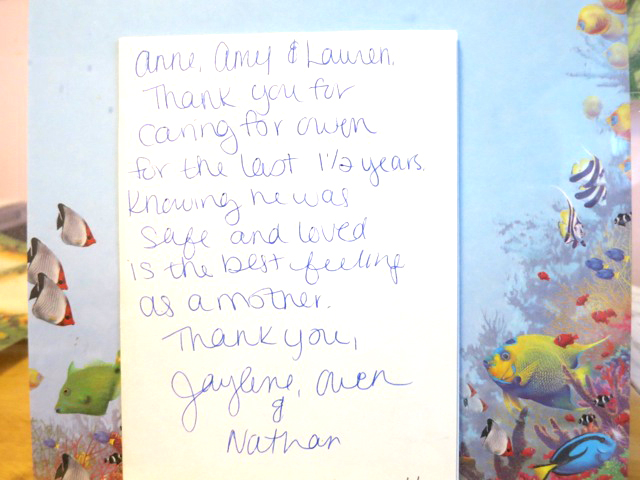 Anne, Amy & Lauren,
Thank you for
caring for Owen
for the last 1 1/2 years.
Knowing he was
safe and loved
is the best feeling
as a mother.
Thank you,
Jaylene, Owen
&
Nathan